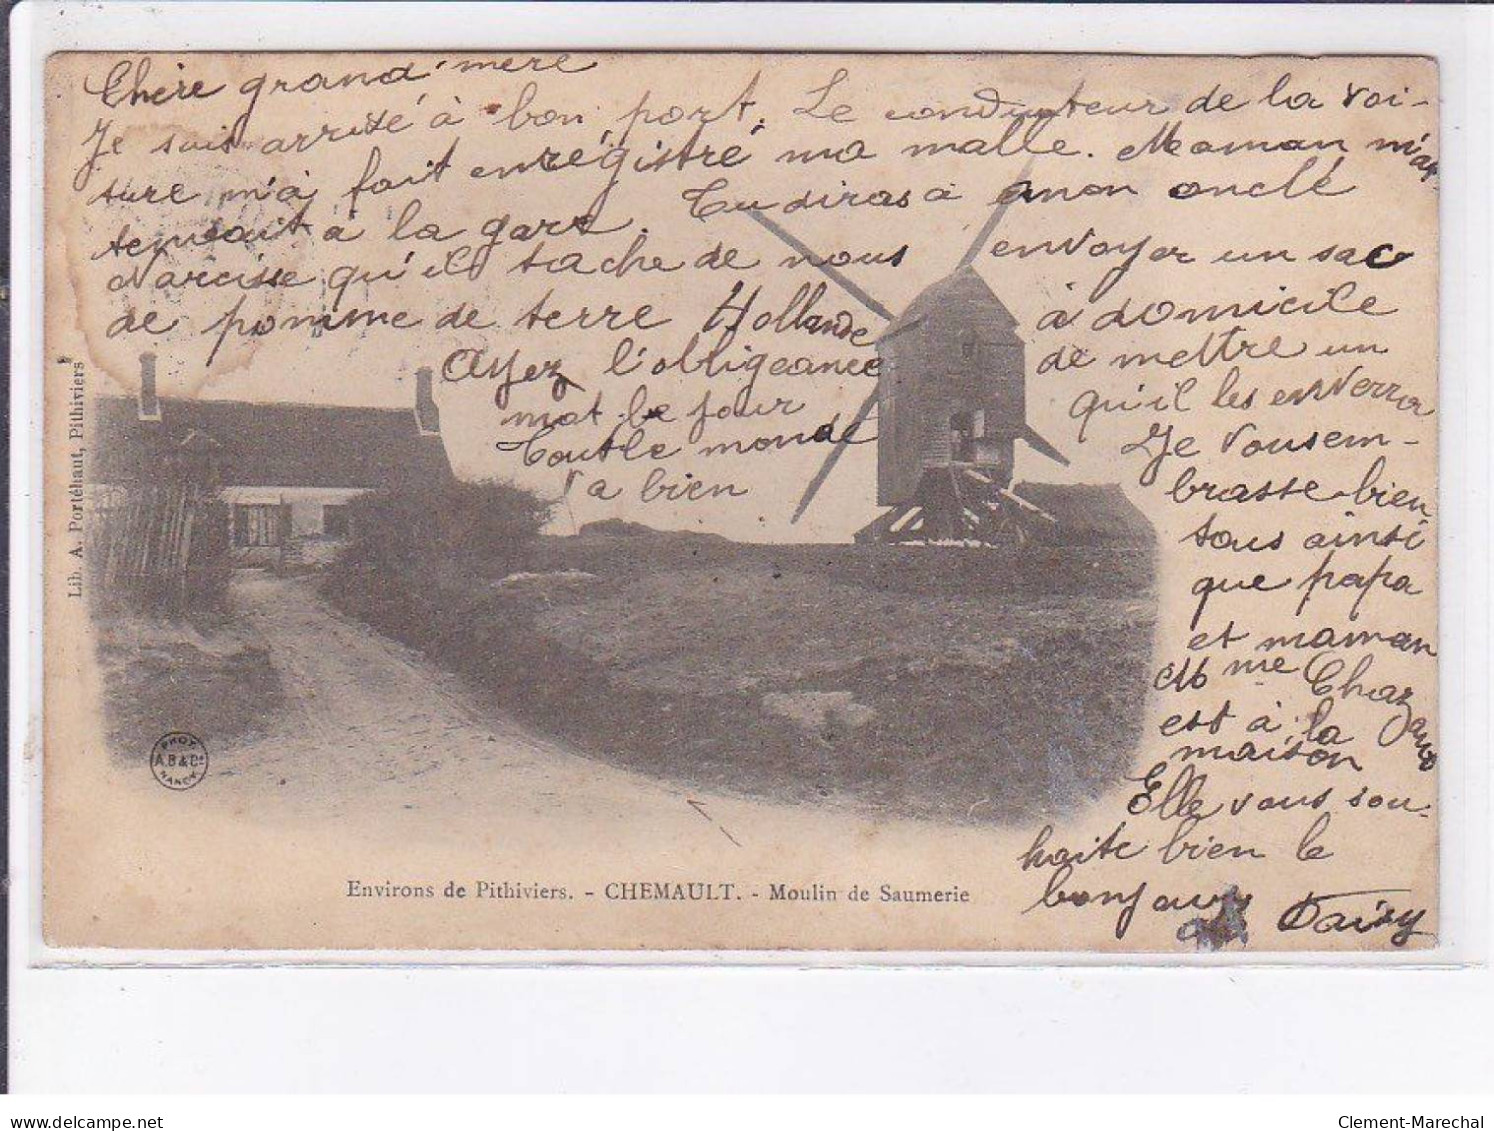 Chère grand'mère
Je suis arrivé à bon port. Le conducteur de la voi-
ture m'à fait enrégistré ma malle. Maman m'at
tendait à la gare. Tu diras à mon onclé
Narcisse qu'il tache de nous envoyer un sac
de pomme de terre Hollande à domicile
Ayez l'obligeance de mettre un
mot le jour qu'il les enverra
Tout le monde Je vous em-
va bien brasse bien
tous ainsi
que papa
et maman
Mme
est à la
maison
Elle vous sou-
haite bien le
bonjour
Daisy
Lib. A. Portéhaut, Pithiviers
PHOT
A.B & Cie
NANCY
Environs de Pithiviers. - CHEMAULT. - Moulin de Saumerie
www.delcampe.net
Clement-Marechal